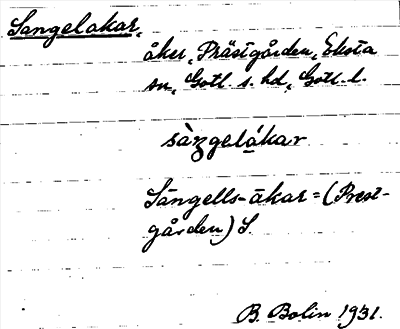 Sangelakar,
åker, Prästgården, Eksta
sn, Gotl. s. hd, Gotl. l.
sàŋgelákar
Sängells-åkar = (Prest-
gården) S.
B. Bolin 1931.